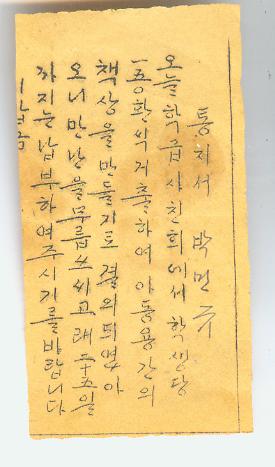 통지서 박민규
오늘학급사친회에서 학생당
一五○환씩거출하여 아동용간의
책상을 만들기로 결의되였아
오니 만난을무릅쓰시고래二十五일
까지는납부하여주시기를바랍니다